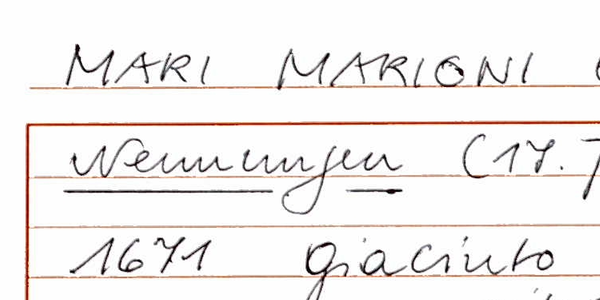 MARI MARIONI
Nennungen (17.
1671 giacinto